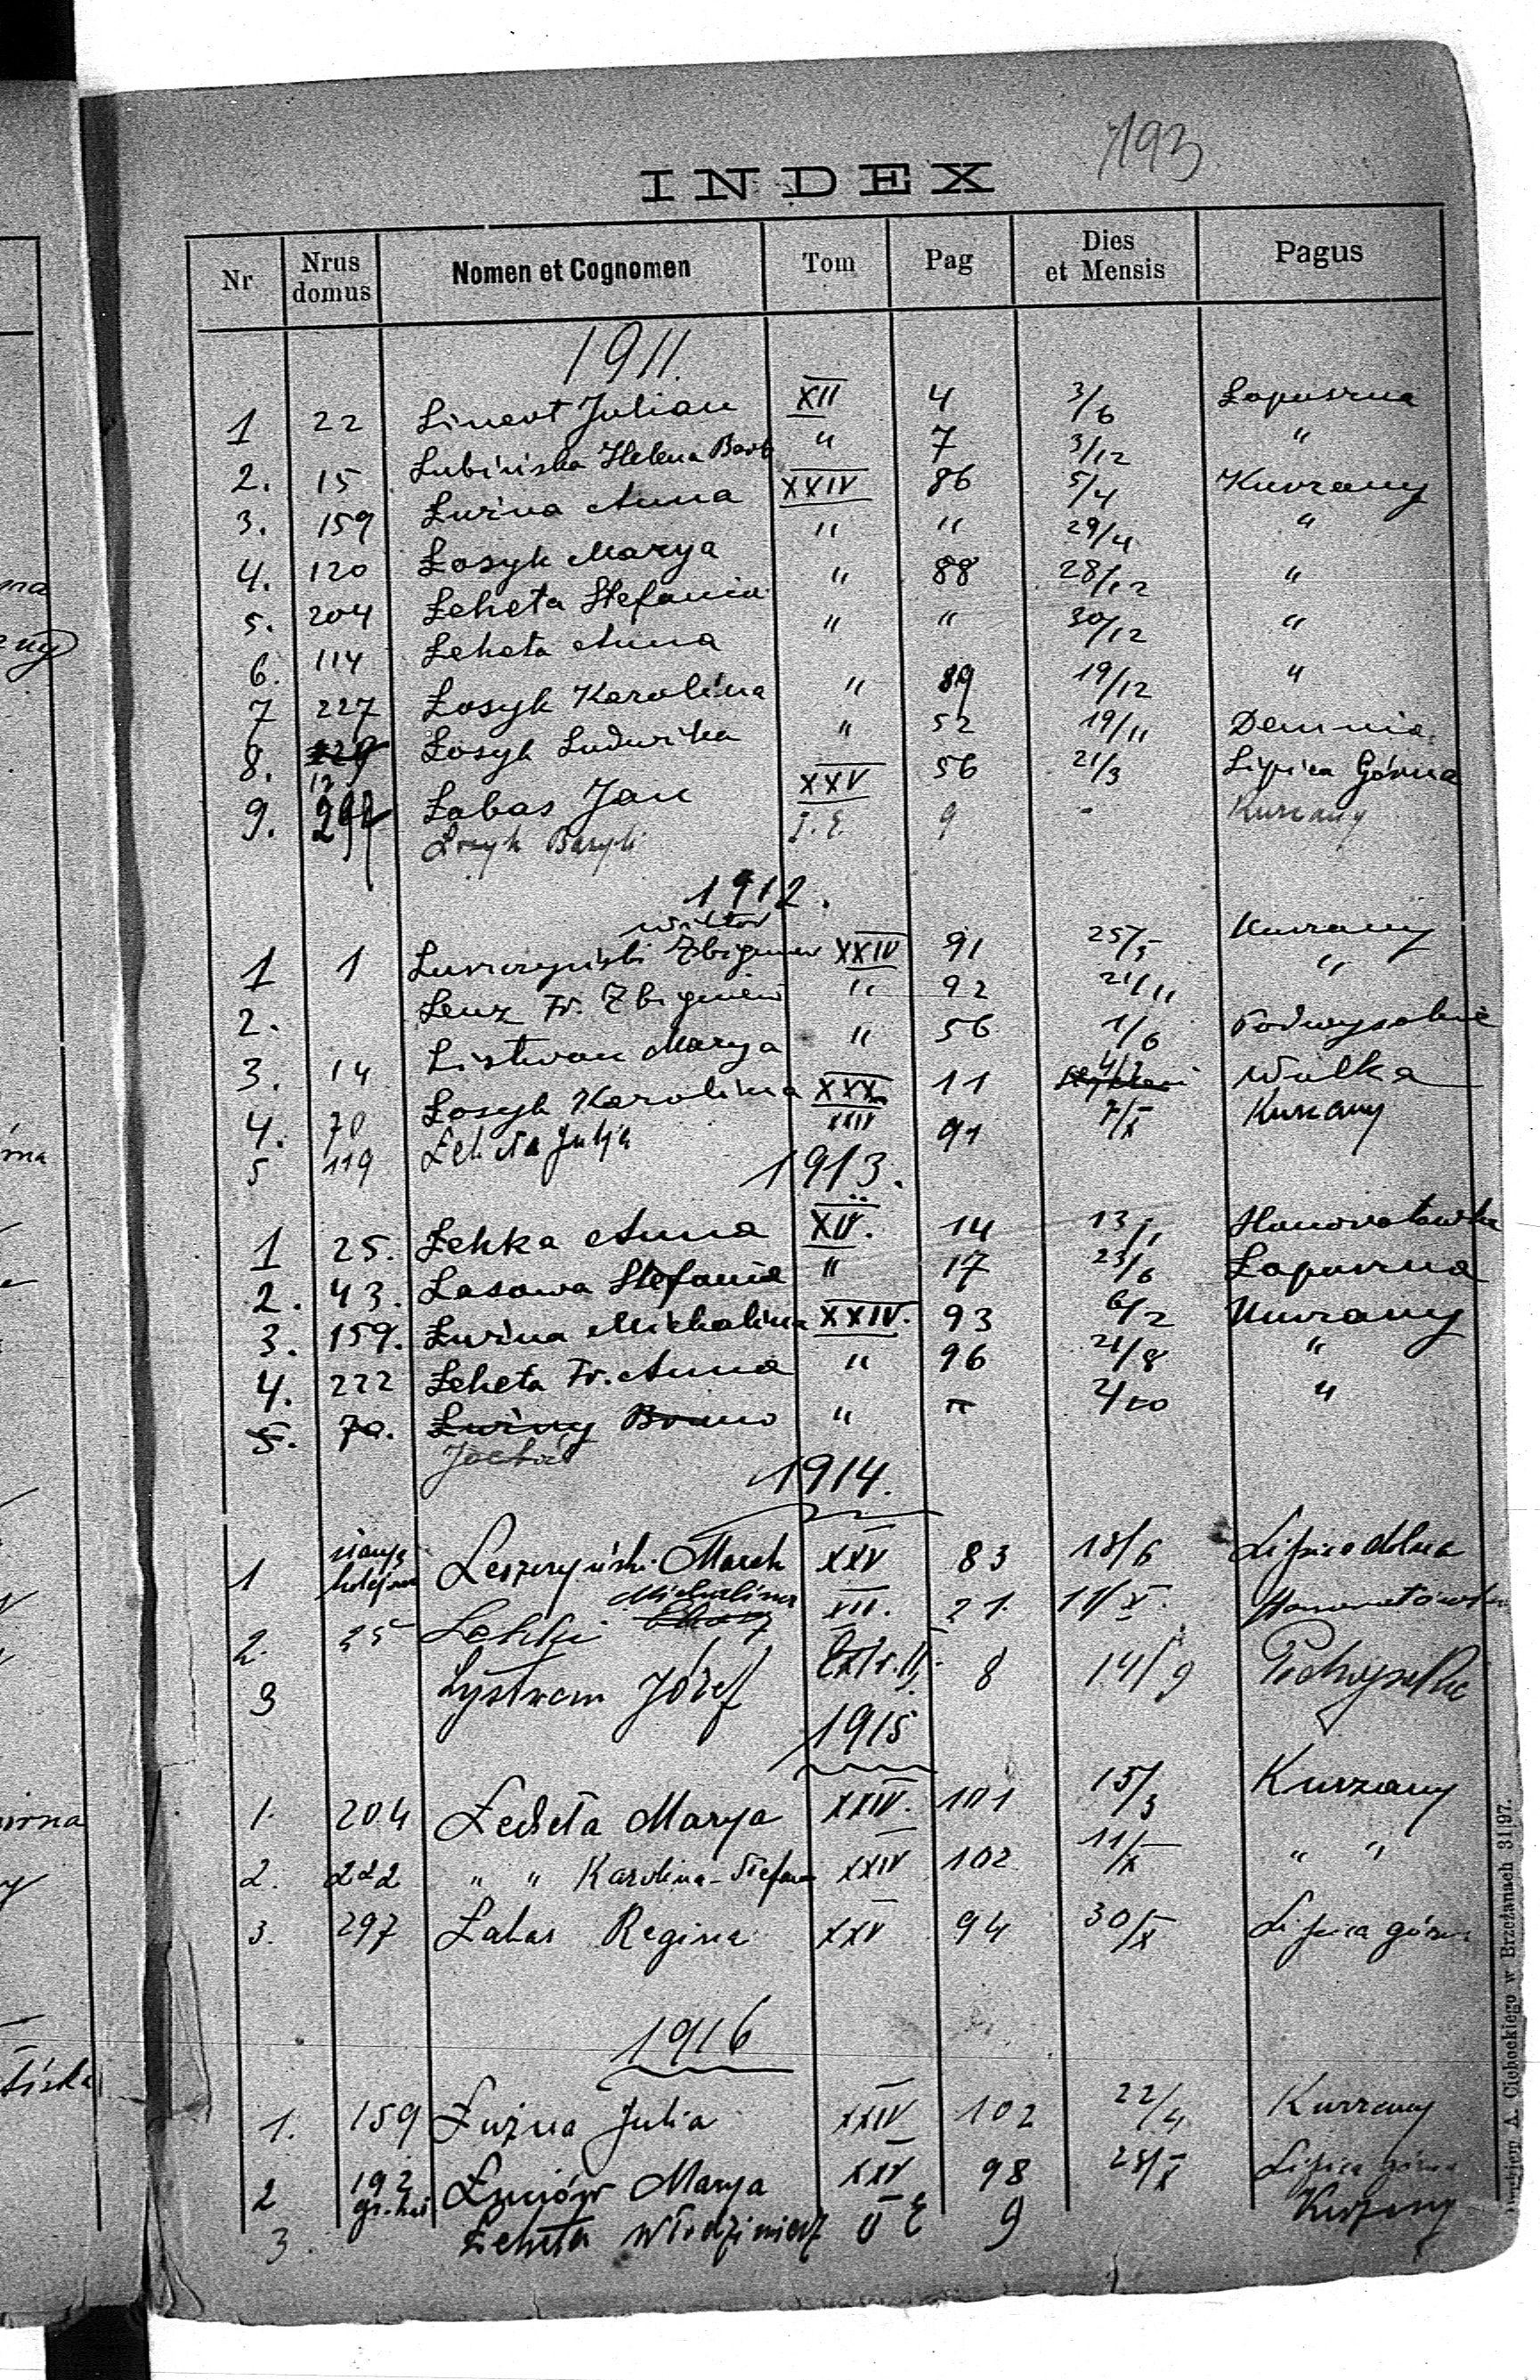 193
INDEX
Nr Nrus domus Nomen et Cognomen Tom Pag Dies et Mensis Pagus
1911.
1 22 Linert Julian XII 4 3/6 Łopuszna
2. 15 Lubińska Helena Barb " 7 3/12 "
3. 159 Łuzna Anna XXIV 86 5/4 Kurzany
4. 120 Łosyk Marya " " 29/4 "
5. 204 Łeheta Stefania " 88 28/12 "
6. 114 Łeheta Anna " " 30/12 "
7 227 Łosyk Karolina " 89 19/12 "
8. Łosyk Ludwika " 52 19/11 Demnia
9. Łabas Jan XXV 56 21/3 Lipica Górna
Łosyk Bazyli 9 - Kurzany
1912.
Wiktor
1 1 Zbigniew XXIV 91 25/5 Kurzany
2. Lenz Fr. Zbigniew " 92 21/11 "
3. 14 Listwan Marya " 56 1/6 Podwysokie
4. 70 Łosyk Karolina XXX 11 Wulka
5 119 Łeheta Julja XXIV 91 7/X Kurzany
1913.
1 25. Łehka Anna XII. 14 13/1 Honoratówka
2. 43. Lasowa Stefania " 17 23/6 Łopuszna
3. 159. Łuzna Michalina XXIV. 93 6/2 Kurzany
4. 222 Łeheta Fr. Anna " 96 21/8 "
5. 70. Łuzny Bruno " " 4/10 "
1914.
1 Leszczyński Marek XXV 83 18/6 Lipica dolna
Michalina
2. 25 Łehki XII. 21. 11/X. Honoratówka
3 Lystwan Józef Extr. II. 8 14/9 Podwysokie
1915
1. 204 Łeheta Marya XXIV. 101 15/3 Kurzany
2. 222 " " Karolina-Stefania XXIV 102 11/X " "
3. 297 Łabas Regina XXV 94 30/X Lipica górna
1916
1. 159 Łużna Julia XXIV 102 22/4 Kurzany
2 192 gr. kat Marya XXV 98 28/X Lipica górna
3. Łeheta Włodzimierz II E 9 Kurzany
Drukiem A. Cichockiego w Brzeżanach 31|97.